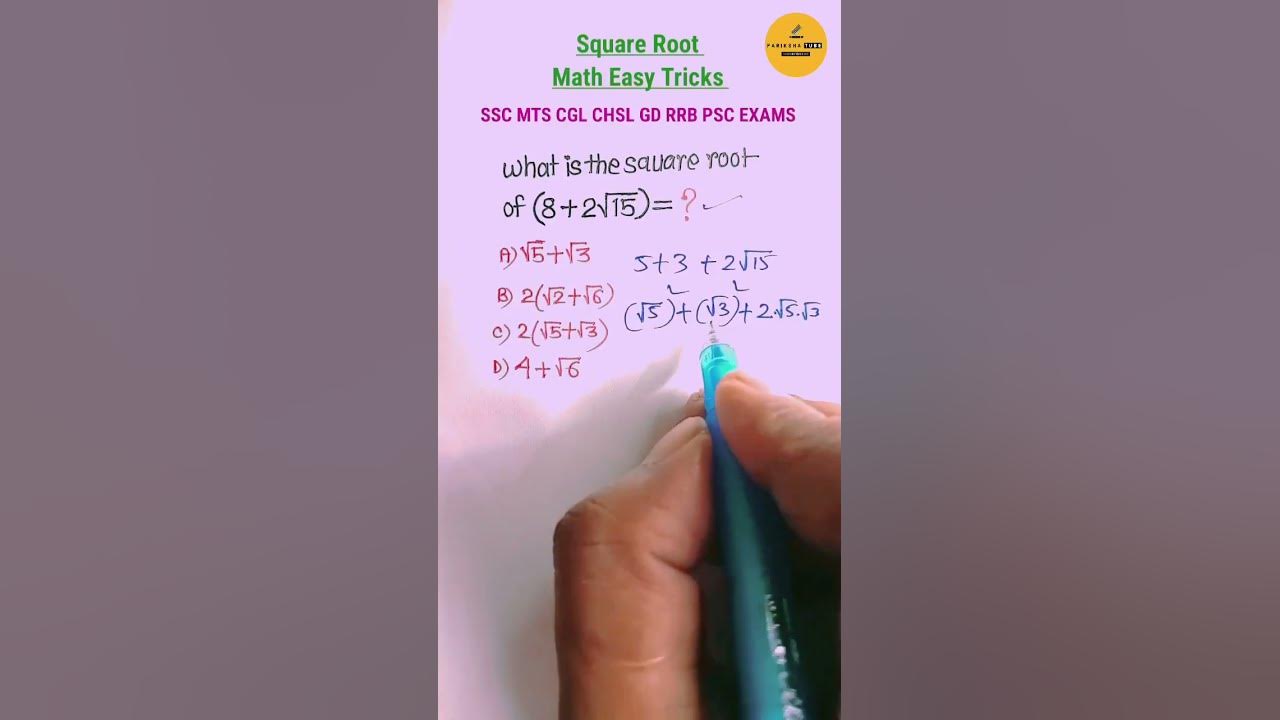 Square Root
Math Easy Tricks
PARIKSHA TUBE
SSC MTS CGL CHSL GD RRB PSC EXAMS
What is the square root
of (8+2√15)= ?
A) √5+√3
B) 2(√2+√6)
C) 2(√5+√3)
D) 4+√6
5+3 +2√15
(√5)²+(√3)²+2.√5.√3